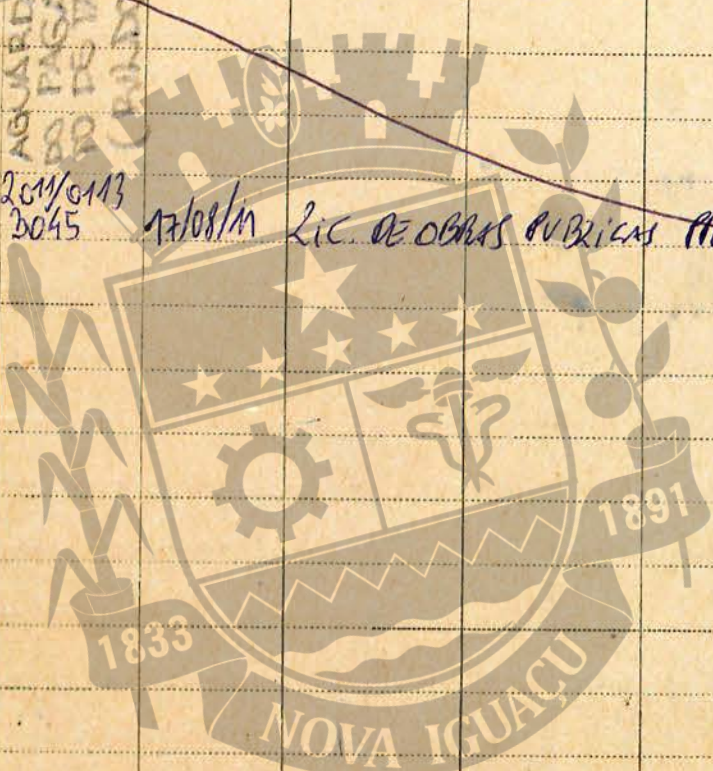 AGUARD
2011/0113
3045 17/08/11 LIC. DE OBRAS PUBLICAS
1891
1833
NOVA IGUAÇU